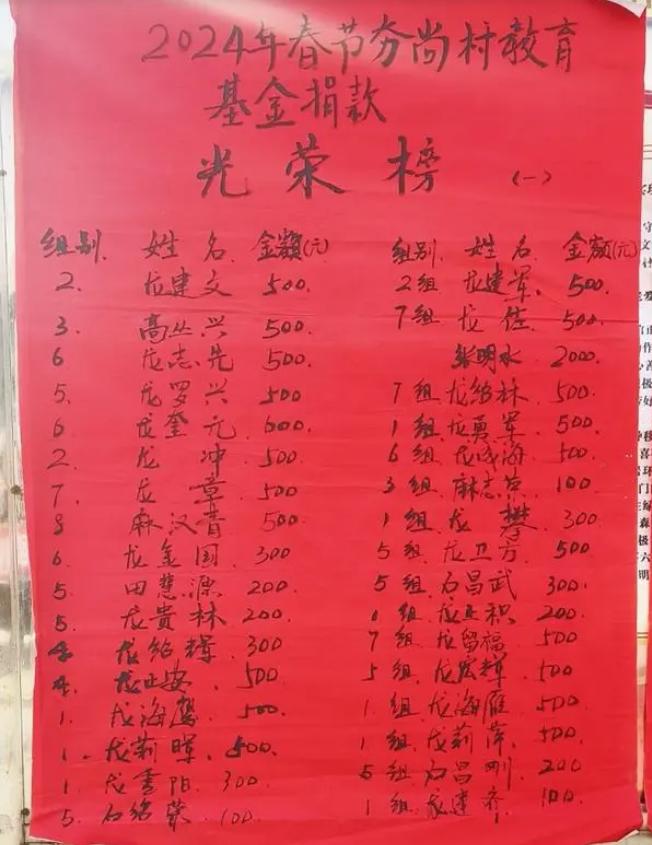 2024年春节夯尚村教育
基金捐款
光荣榜 (一)
组别 姓名 金额(元) 组别 姓名 金额(元)
2. 龙建文 500. 2组 龙建军. 500.
3. 高丛兴 500. 7组 龙佐 500.
6 龙志先 500. 张明水 2000.
5. 龙罗兴 500 7组 龙绍林 500.
6 龙奎元 600. 1组 龙勇军 500.
2. 龙冲 500. 6组 龙成海 500.
7. 龙章 500. 3组 麻志京 100
8 麻汉青 500. 1组 龙攀 300
6. 龙金国 300 5组 龙卫方 500.
5 田慧源 200 5组 石昌武 300.
5. 龙贵林 200. 组 龙正积 200
4 龙绍辉 300 7组 龙留福 500
4. 龙正安 500 5组 龙宏辉 500
1. 龙海鹰 500 1组 龙海雁 500
1. 龙莉晖 500. 1组 龙莉萍 500.
1 龙雪阳 300 5组 石昌刚 200
5. 石绍荣 100 1组 龙建齐 100.
守
文